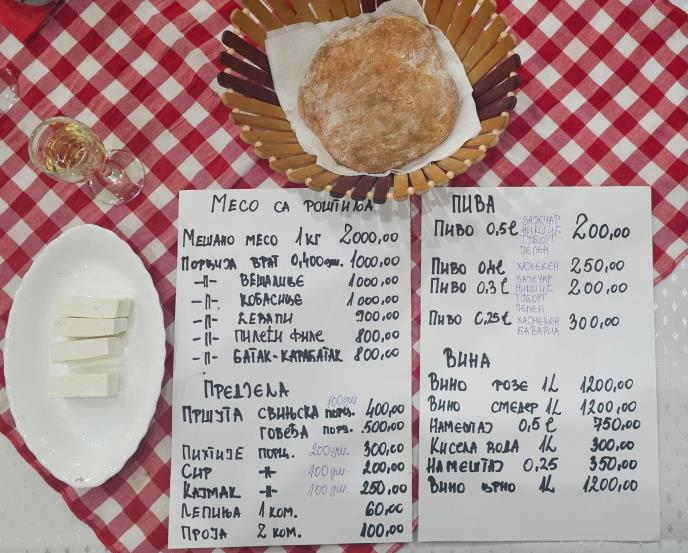 МЕСО СА РОШТИЉА
МЕШАНО МЕСО 1 КГ 2000,00
ПОРЦИЈА ВРАТ 0,400 gm. 1000,00
-||- ВЕШАЛИЦЕ 1000,00
-||- КОБАСИЦЕ 1000,00
-||- ЋЕВАПИ 900,00
-||- ПИЛЕЋИ ФИЛЕ 800,00
-||- БАТАК-КАРАБАТАК 800,00
ПРЕДЈЕЛА
100 gm
ПРШУТА СВИЊСКА ПОРЦ. 400,00
ГОВЕЂА ПОРЦ. 500,00
ПИХТИЈЕ ПОРЦ. 200 gm. 300,00
СИР -||- 100 gm. 200,00
КАЈМАК -||- 100 gm. 250,00
ЛЕПИЊА 1 КОМ. 60,00
ПРОЈА 2 КОМ. 100,00
ПИВА
ПИВО 0,5ℓ ЗАЈЕЧАР НИКШИЋ ТУБОРГ ЈЕЛЕН 200,00
ПИВО 0,4ℓ ХАЈНЕКЕН 250,00
ПИВО 0.3ℓ ЗАЈЕЧАР НИКШИЋ ТУБОРГ ЈЕЛЕН 200,00
ПИВО 0,25ℓ ХАЈНЕКЕН БАВАРИА 300,00
ВИНА
ВИНО РОЗЕ 1L 1200,00
ВИНО СМЕДЕР 1L 1200,00
НАМЕШТАЈ 0,5ℓ 750,00
КИСЕЛА ВОДА 1L 300,00
НАМЕШТАЈ 0,25 350,00
ВИНО ЦРНО 1L 1200,00